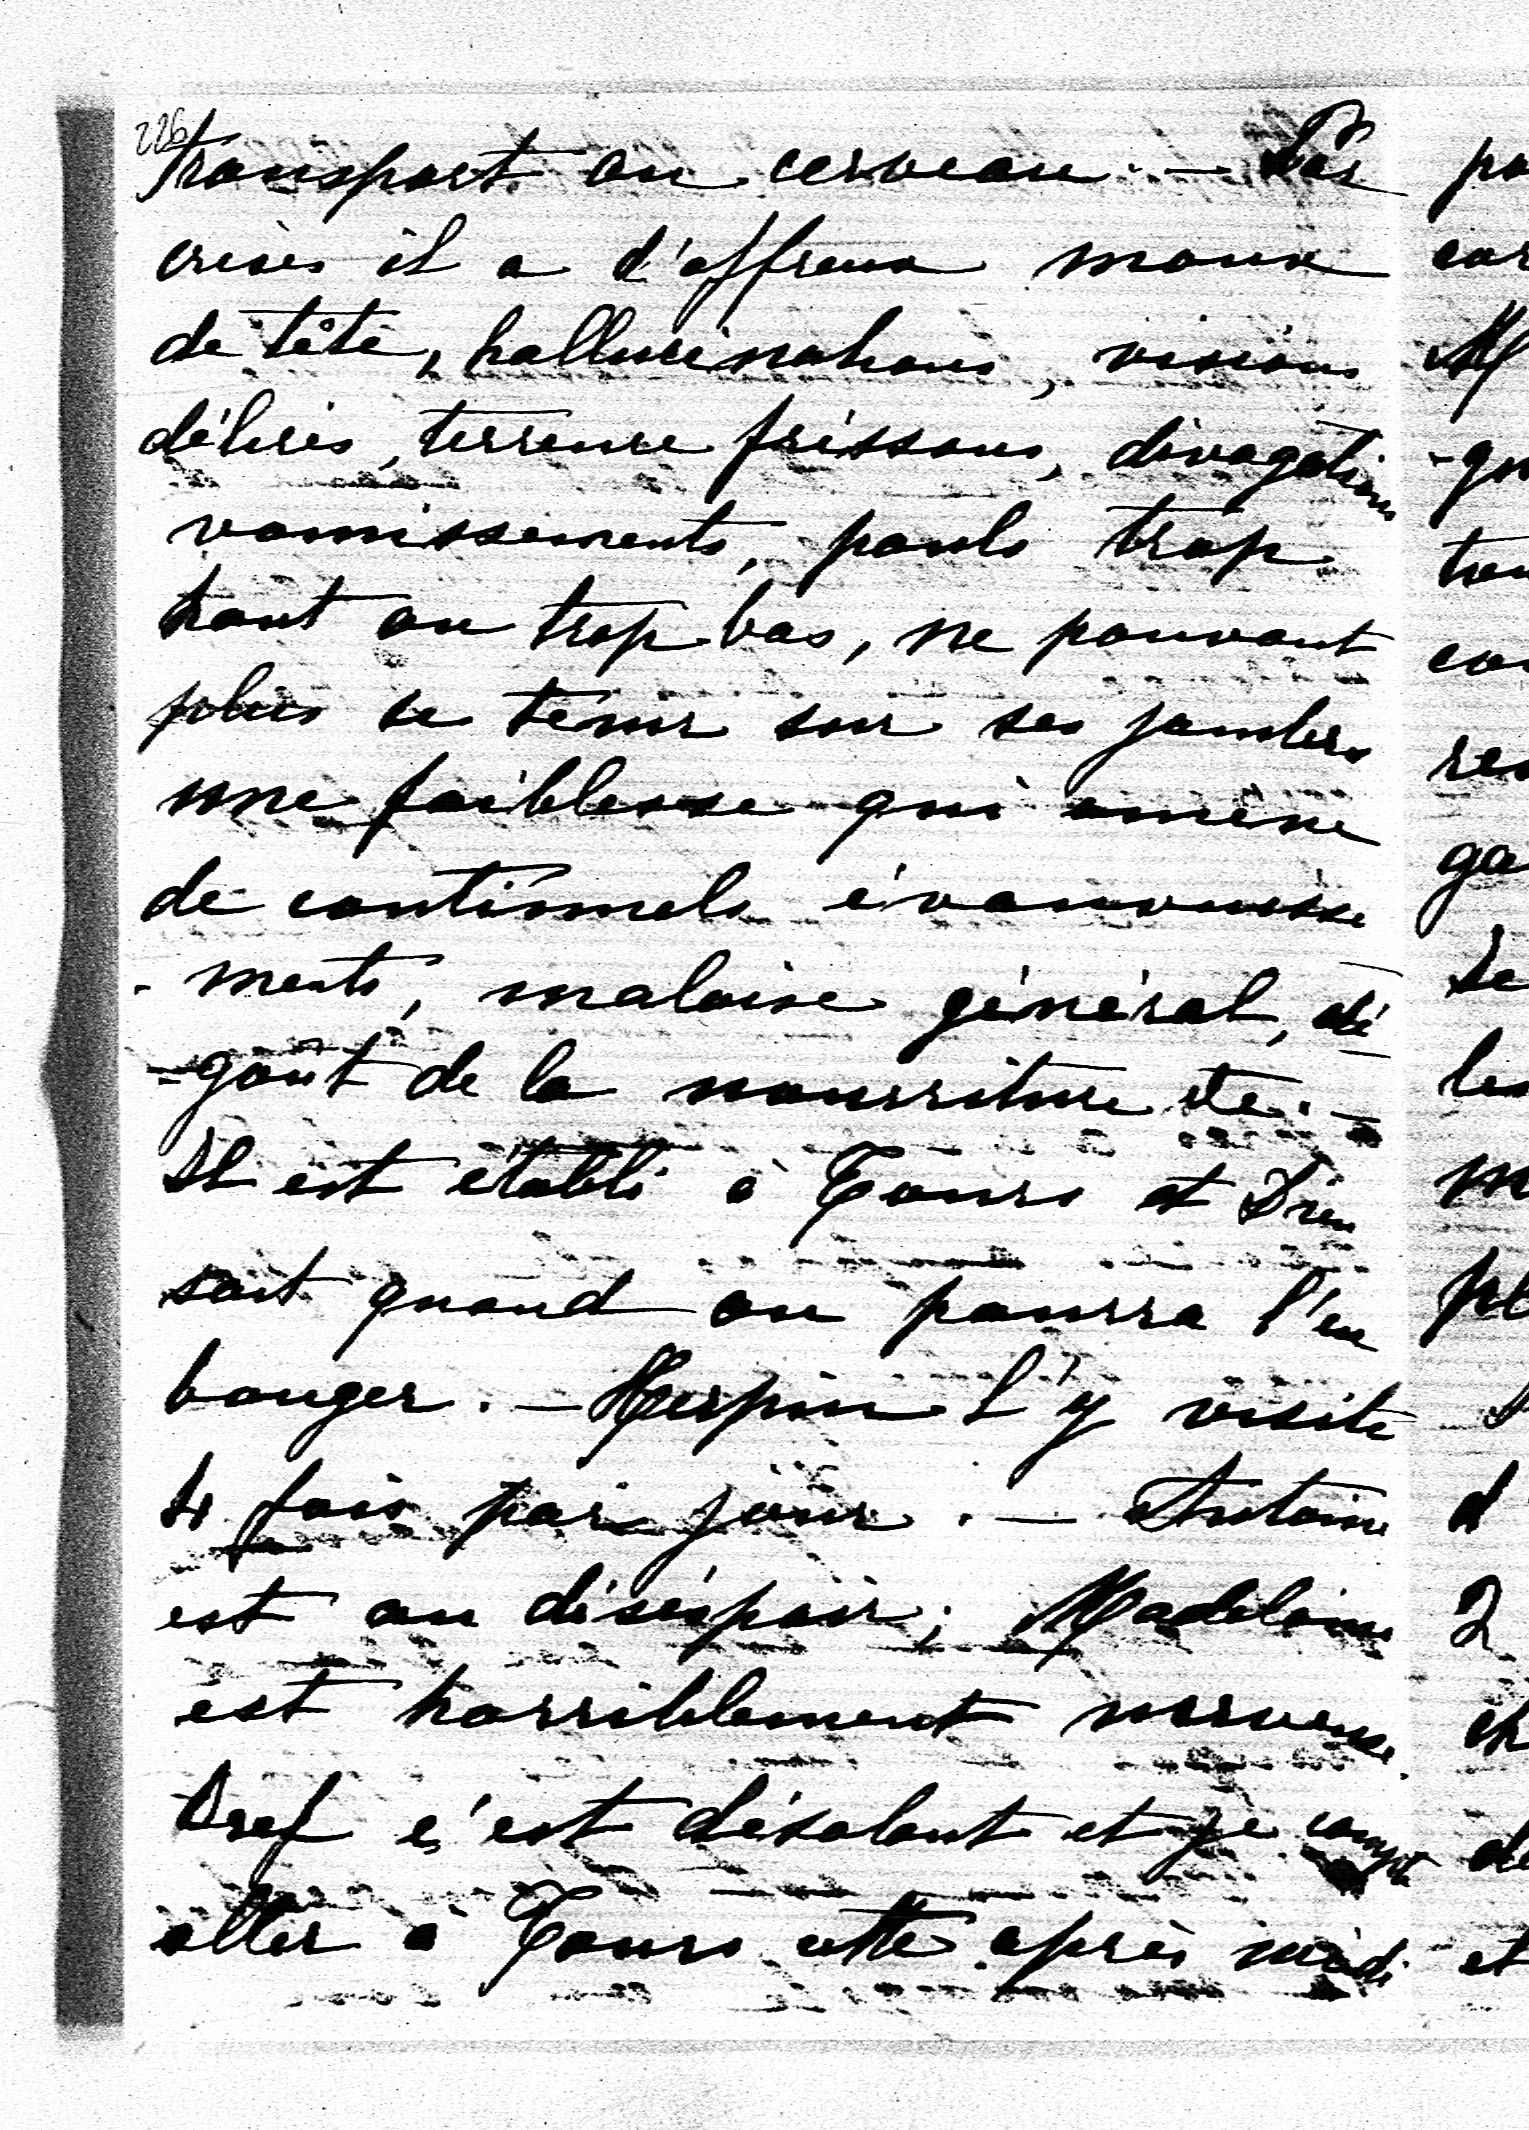 226
transport au cerveau. — Par
crises il a d'affreux maux
de tête, hallucinations, visions
délires, terreurs frissons, divagations
vomissements, pouls trop
haut ou trop bas, ne pouvant
plus se tenir sur ses jambes
une faiblesse qui amène
de continuels évanouisse
- ments, malaise général, dé
- goût de la nourriture etc. —
Il est établi à Tours et Dieu
sait quand on pourra l'en
bouger. — Herpin l'y visite
4 fois par jour. — Antoine
est au désespoir ; Madeleine
est horriblement nerveuse.
Bref c'est désolant et je compte
aller à Tours cette après midi